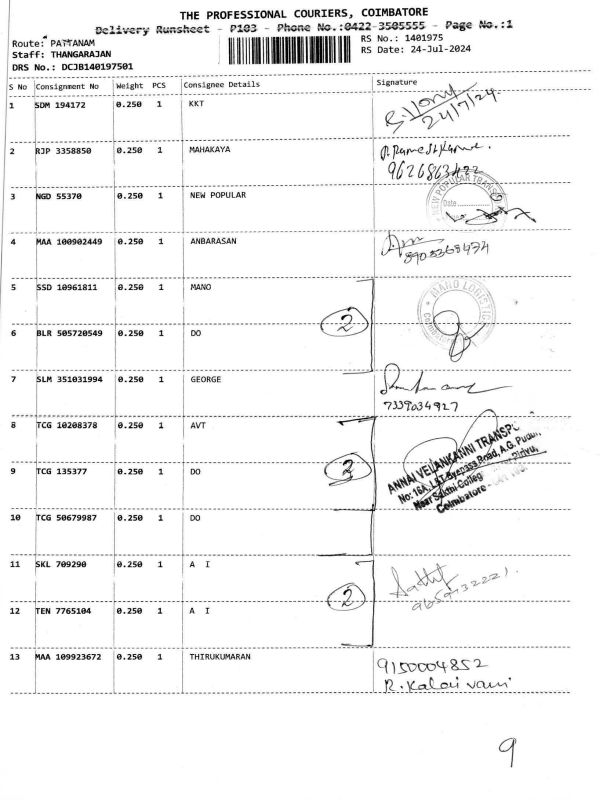 THE PROFESSIONAL COURIERS, COIMBATORE
Delivery Runsheet - P103 - Phone No.:0422-3505555 - Page No.:1
Route: PATTANAM
RS No.: 1401975
Staff: THANGARAJAN
RS Date: 24-Jul-2024
DRS No.: DCJB140197501
S No Consignment No Weight PCS Consignee Details Signature
1 SDM 194172 0.250 1 KKT
24/7/24
2 RJP 3358850 0.250 1 MAHAKAYA
9626863422
3 NGD 55370 0.250 1 NEW POPULAR
NEW POPULAR TRANSPO
Date
4 MAA 100902449 0.250 1 ANBARASAN
5 SSD 10961811 0.250 1 MANO
MANO LOGISTIC
Coimbatore
2
6 BLR 505720549 0.250 1 DO
7 SLM 351031994 0.250 1 GEORGE
7339034927
8 TCG 10208378 0.250 1 AVT
ANNAI VELANKANNI TRANSPO
No: 16A, L&T Byepass Road, A.G. Pudur
Near Sakthi Colleg Pirivu,
Coimbatore
9 TCG 135377 0.250 1 DO
3
10 TCG 50679987 0.250 1 DO
11 SKL 709290 0.250 1 A I
2
12 TEN 7765104 0.250 1 A I
13 MAA 109923672 0.250 1 THIRUKUMARAN
9150004852
R. Kalaivani
9